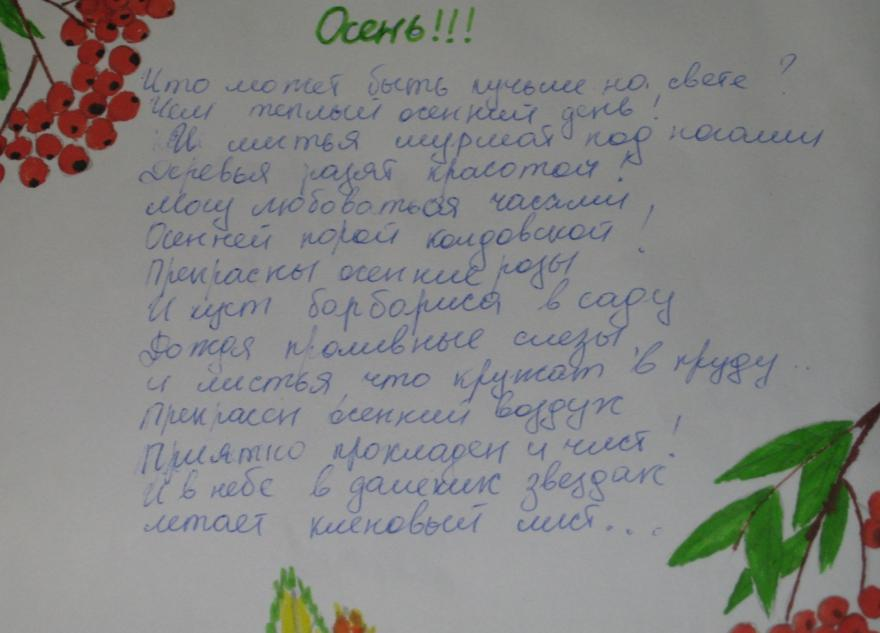 Осень!!!
Что может быть лучьше на свете ?
Чем теплый осенний день !
И листья шуршат под ногами
Деревья разят красотой !
Могу любоваться часами ,
Осенней порой колдовской !
Прекрасны осенние розы
И куст барбориса в саду
Дождя проливные слезы ,
и листья что кружат в пруду ..
Прекрасен осенний воздух
Приятно прокладен и чист !
И в небе в далеких звездах
летает кленовый лист...